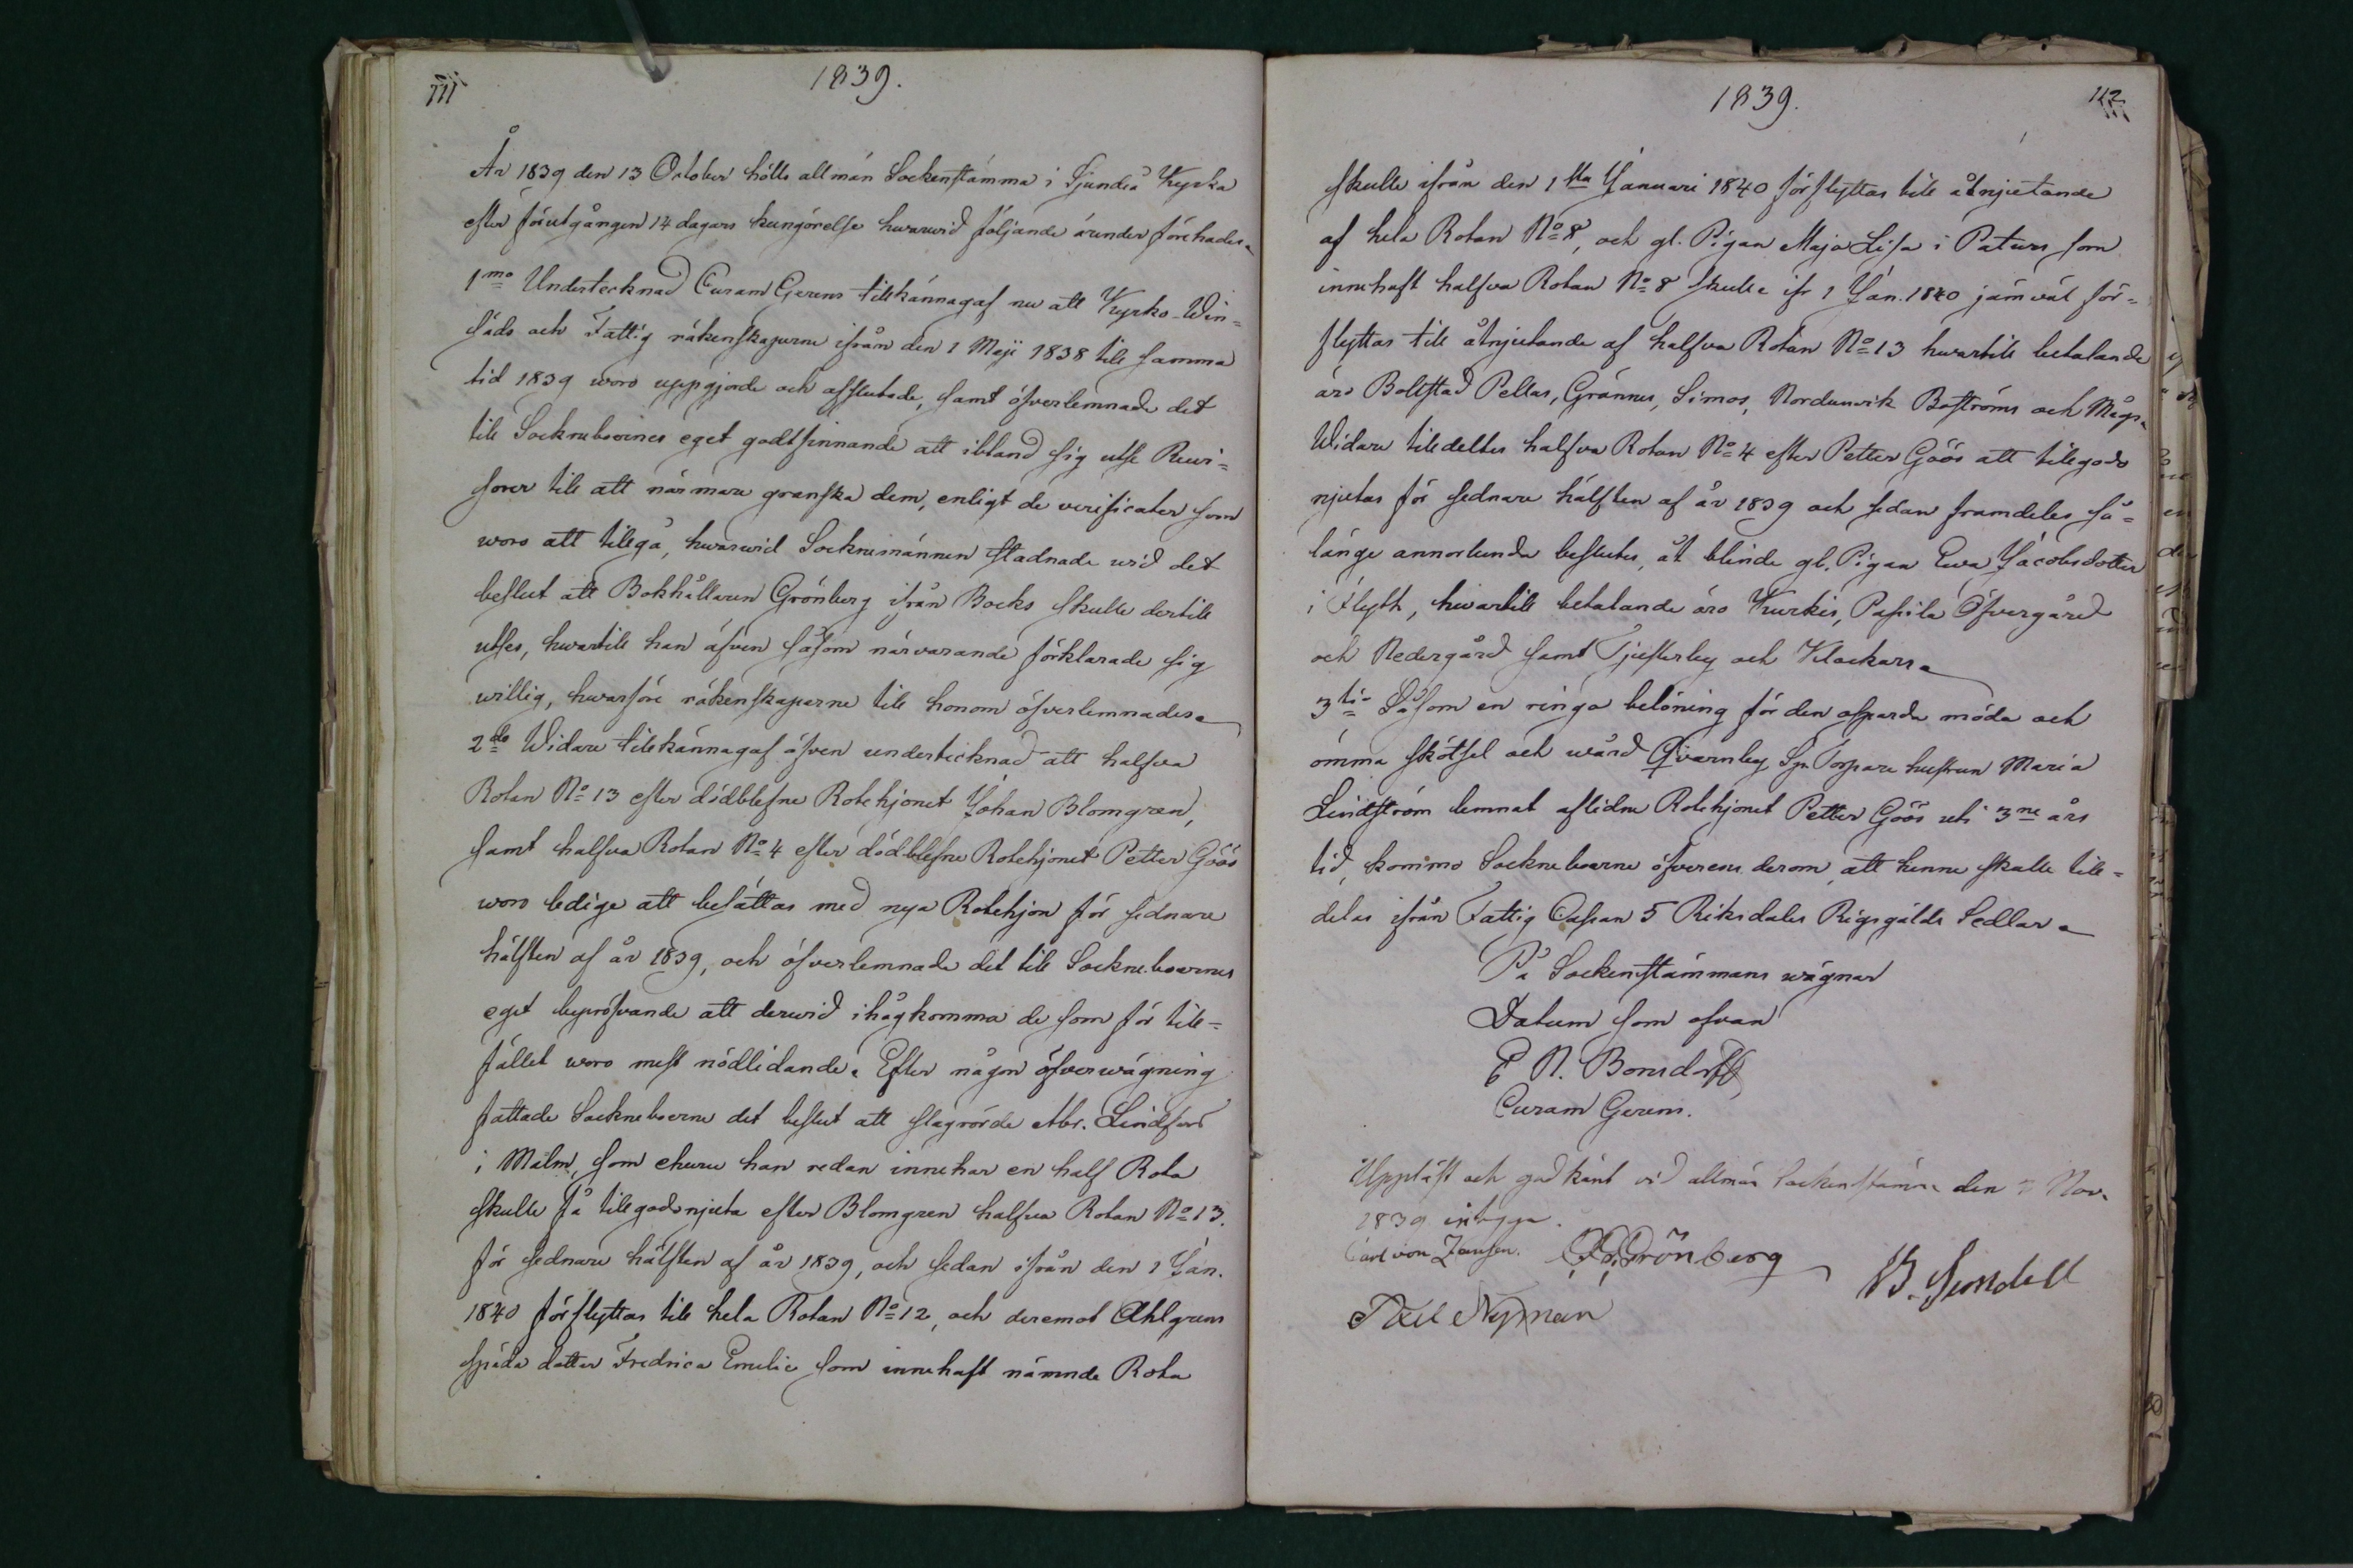 111
1839.
År 1839 den 13 October hölls allmän Sockenstämma i Sjundeå Kyrka
efter förutgången 14 dagars kungörelse hwarwid följande ärender förehades.
1mo Undertecknad Curam Gerens tillkännagaf nu att Kyrko-Win-
säds och Fattig räkenskaperne ifrån den 1 Maji 1838 till samma
tid 1839 woro uppgjorde och afslutade, samt öfverlemnade det
till Sockneboernes eget godtfinnande att ibland sig utse Revi-
sorer till att närmare granska dem, enligt de verificater som
woro att tillgå, hwarwid Socknemännen stadnade wid det
beslut att Bokhållaren Grönberg ifrån Bocks skulle dertill
utses, hwartill han äfven såsom närvarande förklarade sig
willig, hwarföre räkenskaperne till honom öfverlemnades.
2do Widare tillkännagaf äfven undertecknad att halfva
Rotan No 13 efter dödblefne Rotehjonet Johan Blomgren,
samt halfva Rotan No 4 efter dödblefne Rotehjonet Petter Göös
woro ledige att besättas med nya Rotehjon för sednare
hälften af år 1839, och öfverlemnade det till Sockneboernes
eget bepröfvande att derwid ihågkomma de som för till-
fället woro mest nödlidande. Efter någon öfverwägning
fattade Socknebоerne det beslut att slagrörde Abr. Lindfors
i Malm, som ehuru han redan innehar en half Rota
skulle få tillgodonjuta efter Blomgren halfva Rotan No 13.
för sednare hälften af år 1839, och sedan ifrån den 1 Jan.
1840 förflyttas till hela Rotan No 12, och deremot Ahlgrens
späda dotter Fredrica Emelie som innehaft nämnde Rota
1839.
112
skulle ifrån den 1sta Januari 1840 förflyttas till åtnjutande
af hela Rotan No 8, och gl. Pigan Maja Lisa i Paturs som
innehaft halfva Rotan No 8 skulle ifr 1 Jan. 1840 jämväl för-
flyttas till åtnjutande af halfva Rotan No 13 hwartill betalande
äro Bollstad Pellas, Grännes, Simos, Nordanvik Boströms och Mågs.
Widare tilldeltes halfva Rotan No 4 efter Petter Göös att tillgodo
njutas för sednare hälften af år 1839 och sedan framdeles så-
länge annorlunda beslutes, åt blinde gl. Pigan Ewa Jacobsdotter
i Flyth, hwartill betalande äro Kurkis, Pasila Öfvergård
och Nedergård samt Tjusterby och Klockars.
3tio Såsom en ringa belöning för den osparda möda och
ömma skötsel och wård Qvarnby Sp. Torpare hustrun Maria
Lindström lemnat aflidne Rotehjonet Petter Göös uti 3ne års
tid, kommo Socknebоerne öfverens derom, att henne skulle till-
delas ifrån Fattig Cassan 5 Riksdaler Riksgälds Sedlar.
På Sockenstämmans wägnar
Datum som ofvan
E N. Bonsdorff
Curam Gerens.
Uppläst och godkänt vid allmän Sockenstämma den Nov.
1839 intyga.
Carl von Jansen. Grönberg
Axel Nyman